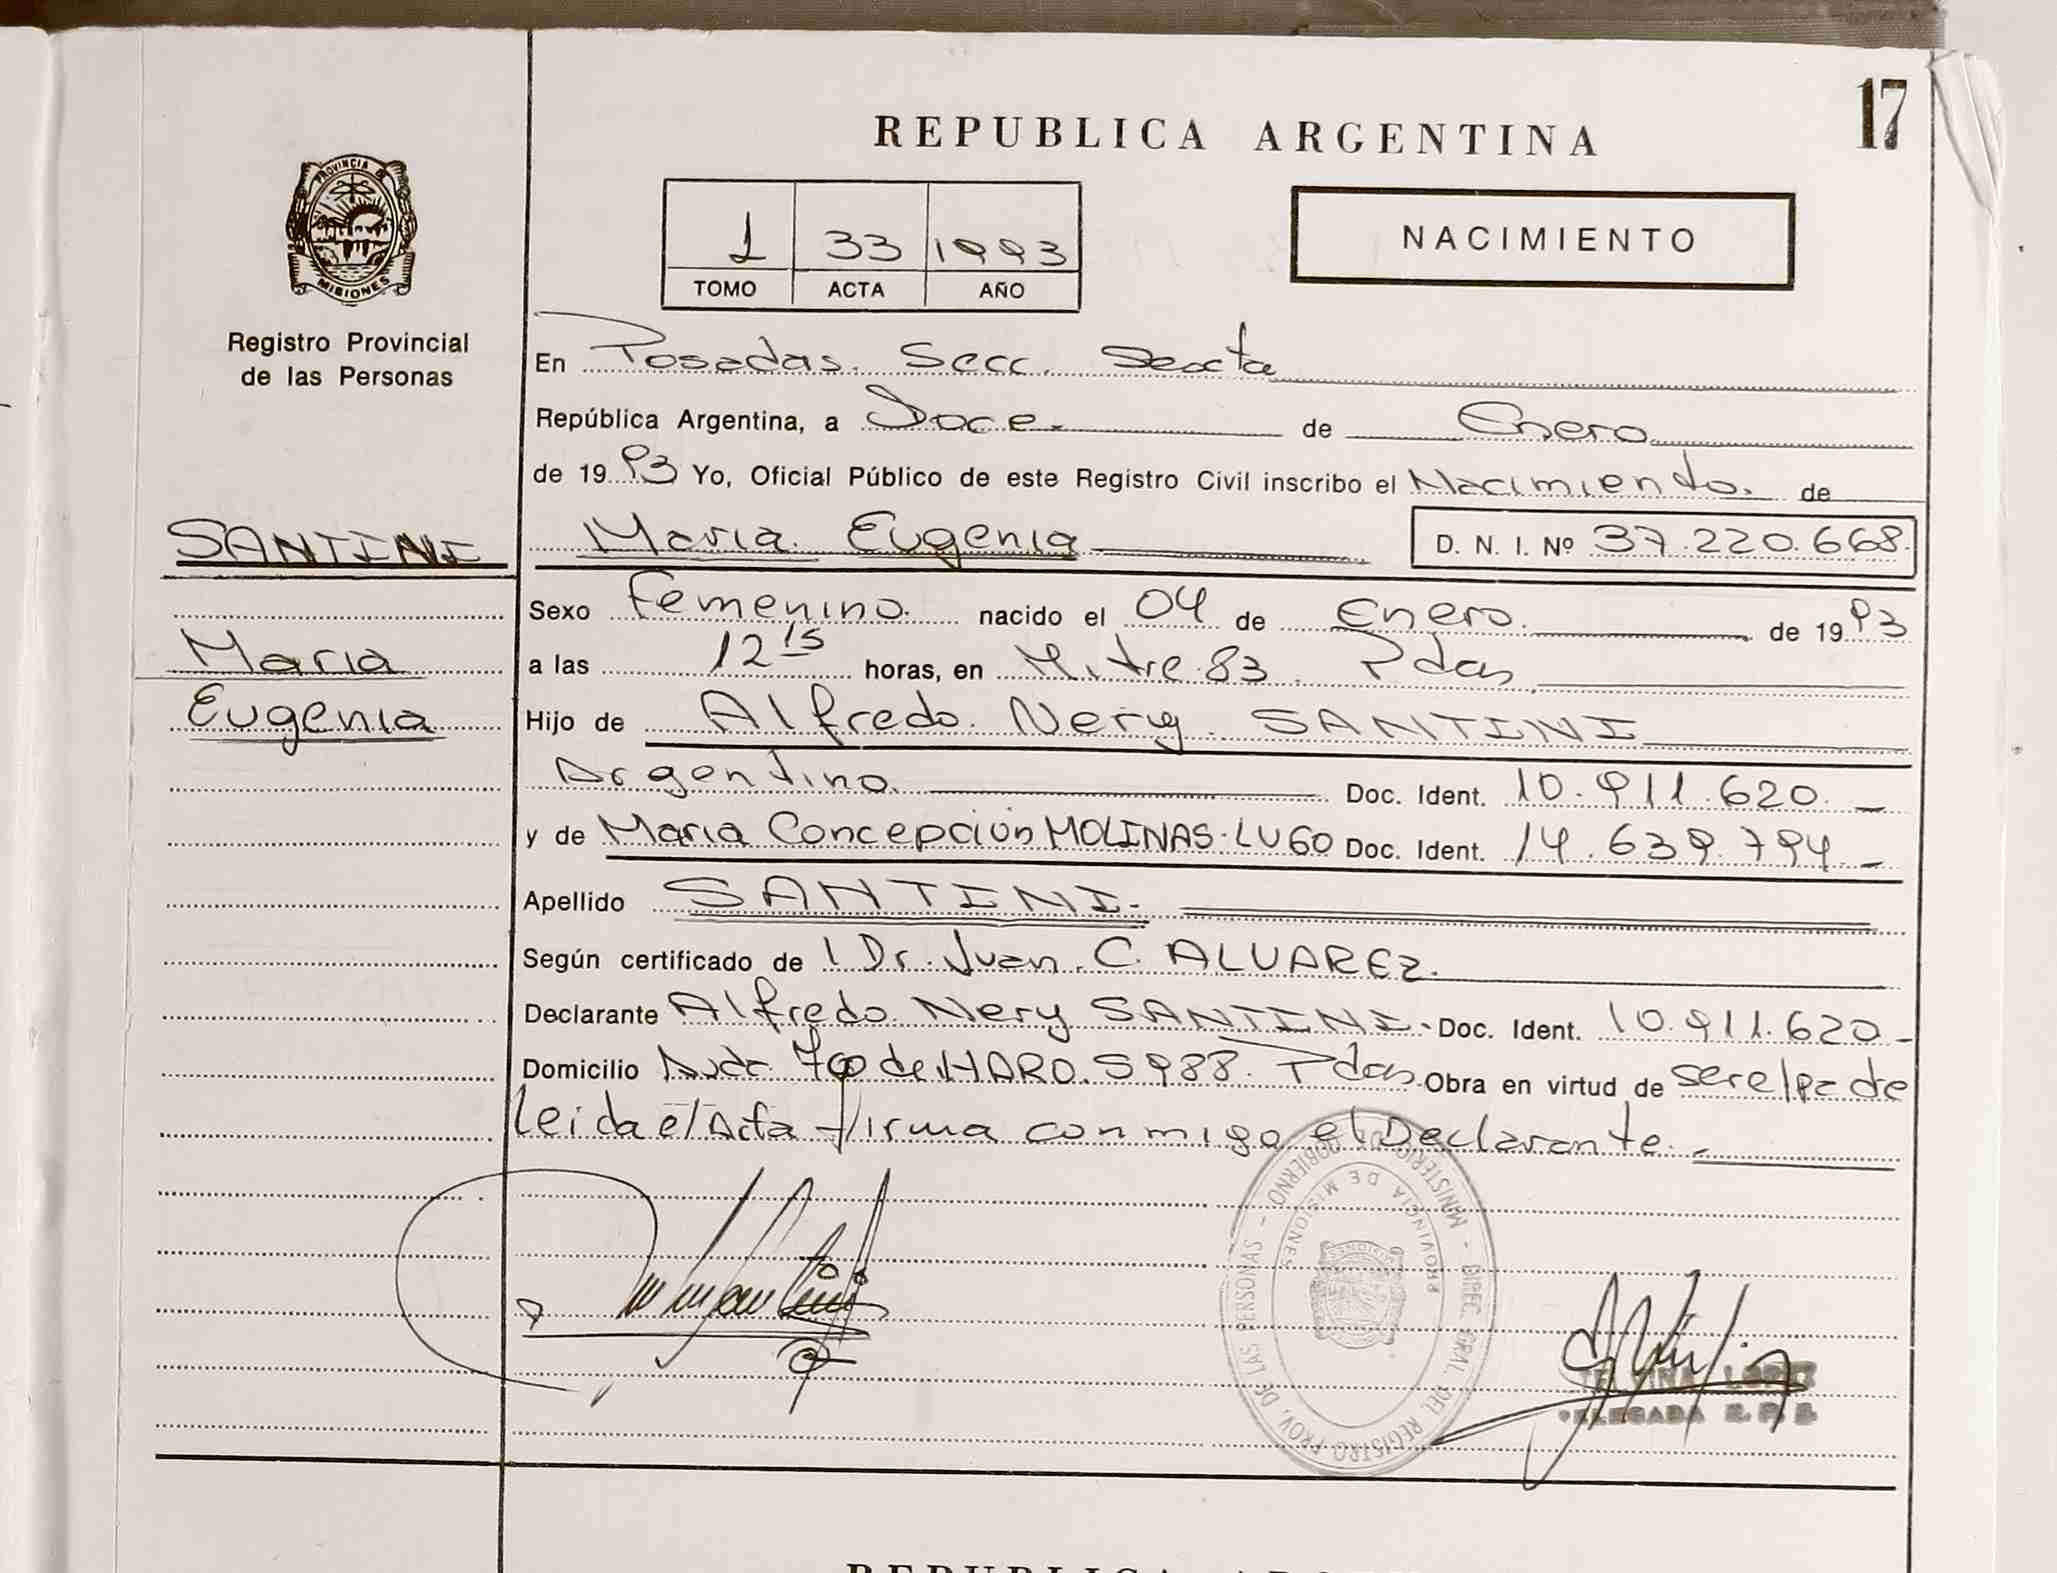 17
REPUBLICA ARGENTINA
PROVINCIA DE
MISIONES
Registro Provincial
de las Personas
1 33 1993
TOMO ACTA AÑO
NACIMIENTO
En Posadas. Secc. Sexta
República Argentina, a Doce. de Enero
de 1993 Yo, Oficial Público de este Registro Civil inscribo el Nacimiento. de
SANTINI
Maria Eugenia
D. N. I. Nº 37.220.668.
Sexo Femenino. nacido el 04 de Enero. de 1993
Maria
a las 12 15 horas, en Mitre 83. Pdas
Eugenia
Hijo de Alfredo Nery SANTINI
Argentino. Doc. Ident. 10.911.620.
y de Maria Concepción MOLINAS-LUGO Doc. Ident. 14.639.794
Apellido SANTINI.
Según certificado de l Dr. Juan C. ALVAREZ.
Declarante Alfredo Nery SANTINI. Doc. Ident. 10.911.620
Domicilio Avda. Fco de HARO. 5988. Pdas Obra en virtud de ser el padre
Leida el Acta firma conmigo el Declarante.
MINISTERIO DE GOBIERNO - DIREC. GRAL. DEL REGISTRO PROV. DE LAS PERSONAS -
PROVINCIA DE MISIONES
LOPEZ
DELEGADA R. P. P.